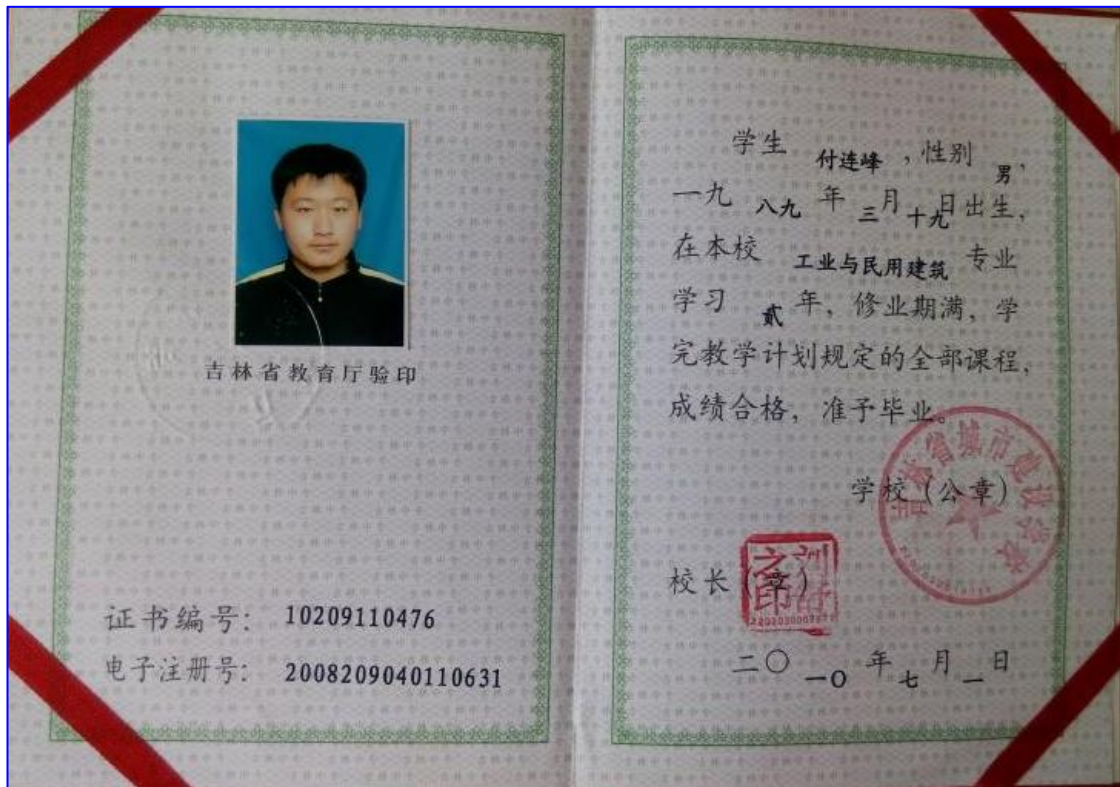 吉林省教育厅验印
证书编号：10209110476
电子注册号：2008209040110631
学生 付连峰，性别 男，
一九八九年三月十九日出生，
在本校 工业与民用建筑 专业
学习 贰 年，修业期满，学
完教学计划规定的全部课程，
成绩合格，准予毕业。
学校（公章）
吉林省城市建设学校
校长（章）
之印
二〇一〇年七月一日